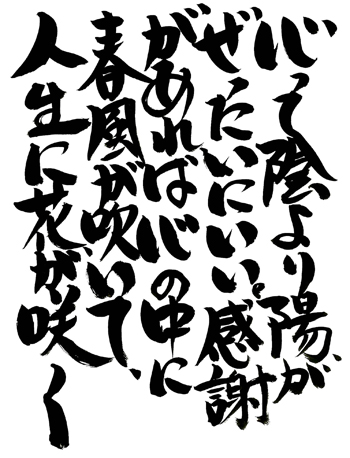 心って陰より陽が、
ぜったいにいい。感謝
があれば心の中に
春風が吹いて、
人生に花が咲く